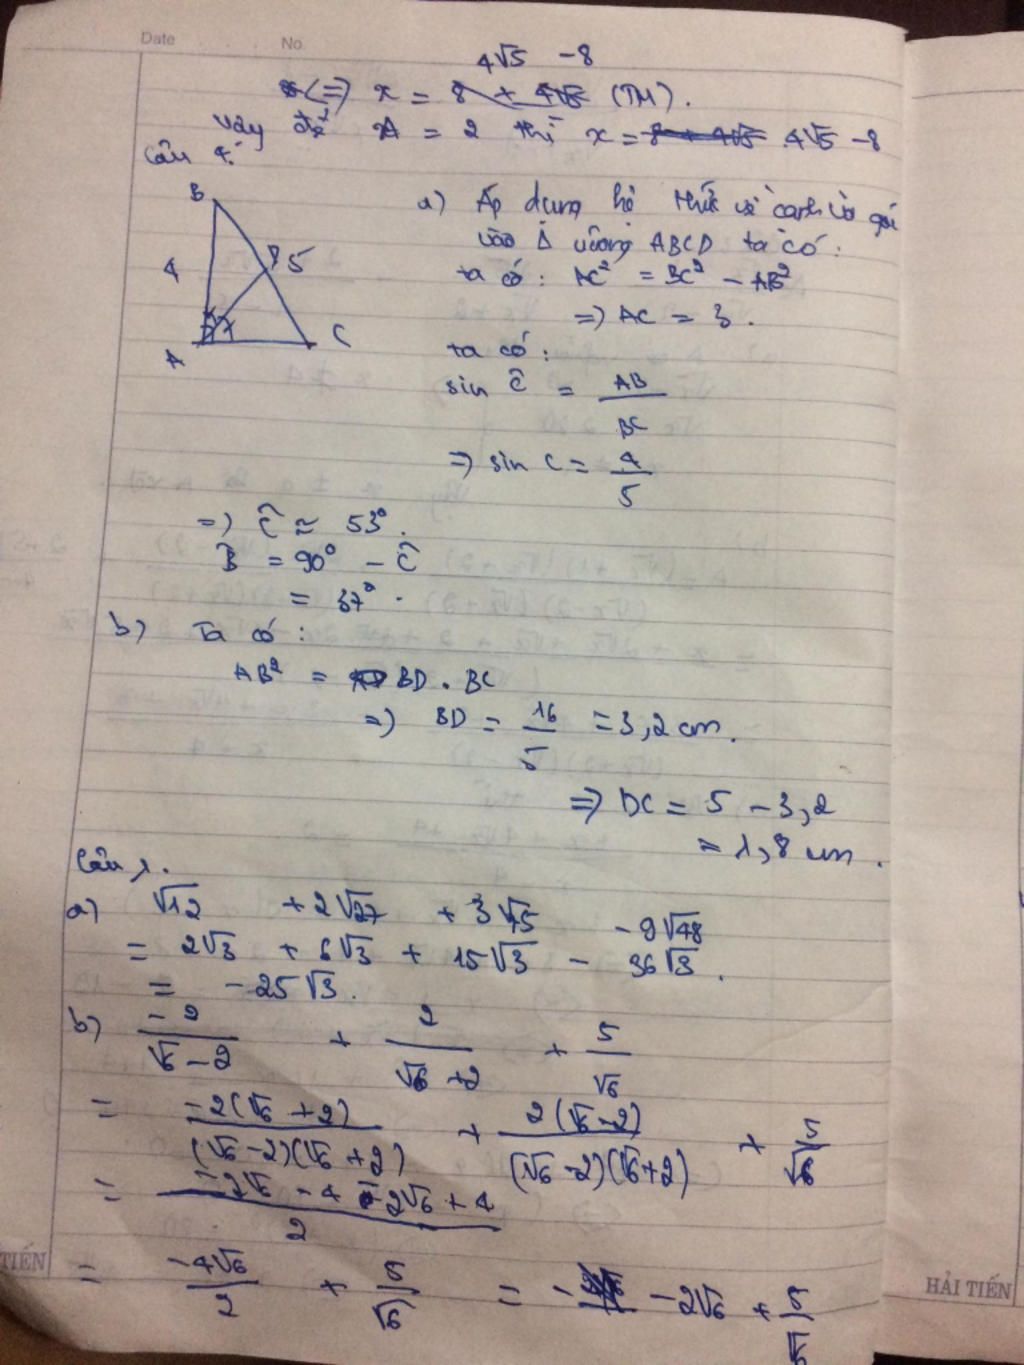 Date No.
4√5 - 8
<=> x = 8 + 4√5 (TM).
Vậy để A = 2 thì x = 8 + 4√5 4√5 - 8
Câu 4:
B
4
5
A
C
a) Áp dụng hệ thức về cạnh và góc
vào Δ vuông ABCD ta có:
ta có: AC² = BC² - AB²
=> AC = 3.
ta có:
sin Ĉ = AB / BC
=> sin C = 4 / 5
=> Ĉ ≈ 53°.
B̂ = 90° - Ĉ
= 37°.
b) Ta có:
AB² = BD . BC
=> BD = 16 / 5 = 3,2 cm.
=> DC = 5 - 3,2
= 1,8 cm.
Câu 1.
a) √12 + 2√27 + 3√75 - 9√48
= 2√3 + 6√3 + 15√3 - 36√3.
= -25√3.
b) -2 / √6 - 2 + 2 / √6 + 2 + 5 / √6
= -2(√6 + 2) / (√6 - 2)(√6 + 2) + 2(√6 - 2) / (√6 - 2)(√6 + 2) + 5 / √6
= -2√6 - 4 - 2√6 + 4 / 2
= -4√6 / 2 + 5 / √6 = - 2√6 + 5 / √6
TIẾN
HẢI TIẾN